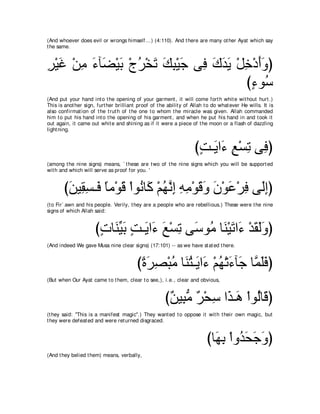 (And whoever does evil or wrongs himself...) (4:110). And there are many other Ayat which say
the same.
وَأَدْخِلْ يَدَكَ فِى جَيْبِكَ تَخْرُجْ بَيْضَآءَ مِنْ غَيْرِ
سُوءٍ)
(And put your hand into the opening of your garment, it will come forth white without hurt.)
This is another sign, further brilliant proof of the ability of Allah to do whatever He wills. It is
also confirmation of the truth of the one to whom the miracle was given. Allah commanded
him to put his hand into the opening of his garment, and when he put his hand in and took it
out again, it came out white and shining as if it were a piece of the moon or a flash of dazzling
lightning.
(فِى تِسْعِ ءَايَـتٍ
(among the nine signs) means, `these are two of the nine signs which you will be supported
with and which will serve as proof for you.'
إِلَى فِرْعَوْنَ وَقَوْمِهِ إِنَّهُمْ كَانُواْ قَوْماً فَـسِقِينَ)
(to Fir`awn and his people. Verily, they are a people who are rebellious.) These were the nine
signs of which Allah said:
(وَلَقَدْ ءَاتَيْنَا مُوسَى تِسْعَ ءَايَـتٍ بَيِّنَاتٍ)
(And indeed We gave Musa nine clear signs) (17:101) -- as we have stated there.
(فَلَمَّا جَآءَتْهُمْ ءَايَـتُنَا مُبْصِرَةً)
(But when Our Ayat came to them, clear to see,), i.e., clear and obvious,
(قَالُواْ هَـذَا سِحْرٌ مُّبِينٌ)
(they said: "This is a manifest magic".) They wanted to oppose it with their own magic, but
they were defeated and were returned disgraced.
(وَجَحَدُواْ بِهَا)
(And they belied them) means, verbally,